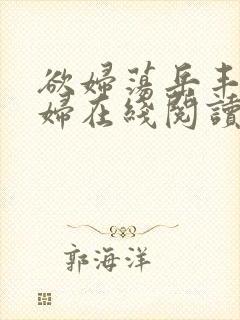 欲婦蕩岳丰
婦在綫閱讀
郭海洋